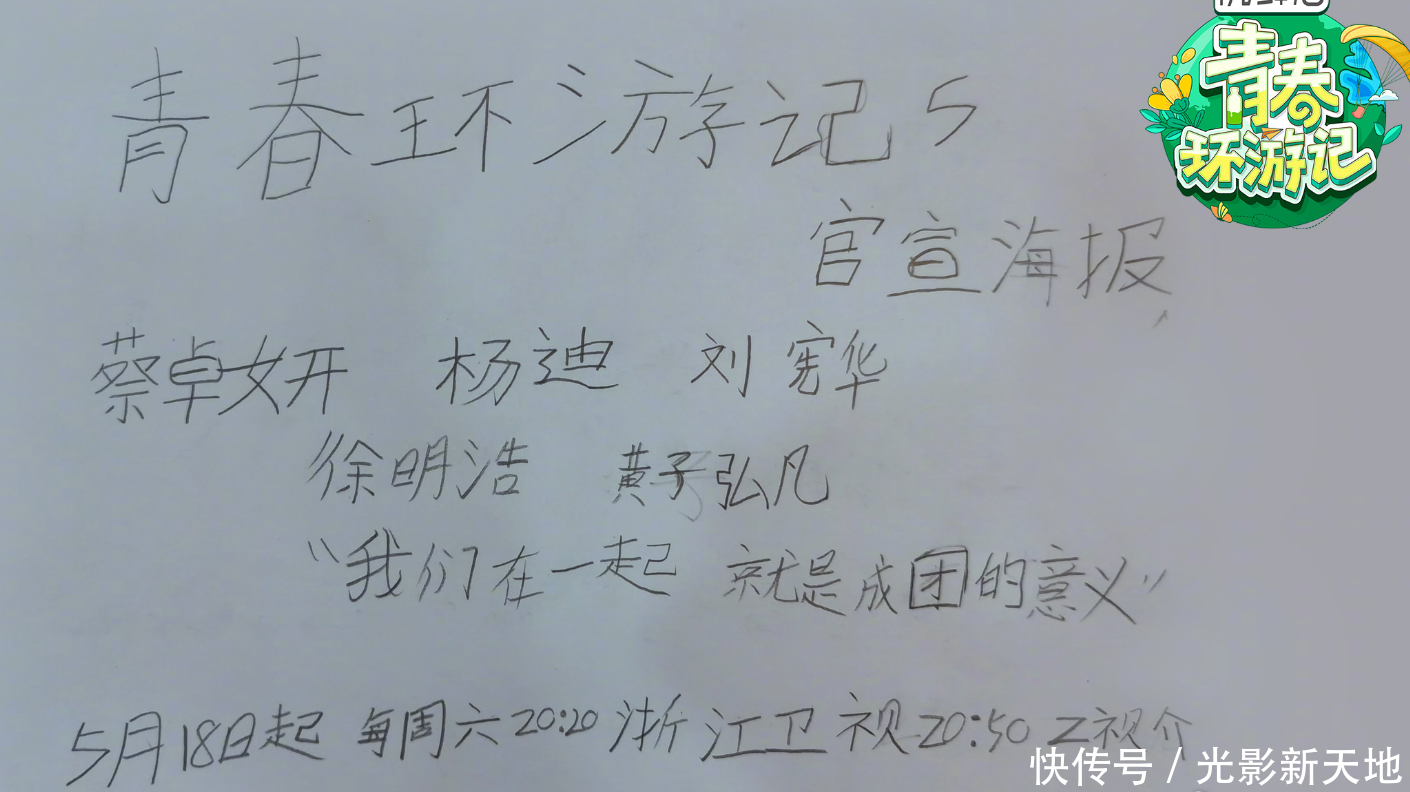 青春环游记5
青春
环游记
官宣海报
蔡卓妍 杨迪 刘宪华
徐明浩 黄子弘凡
“我们在一起 就是成团的意义”
5月18日起 每周六20:20浙江卫视20:50Z视介
快传号 / 光影新天地